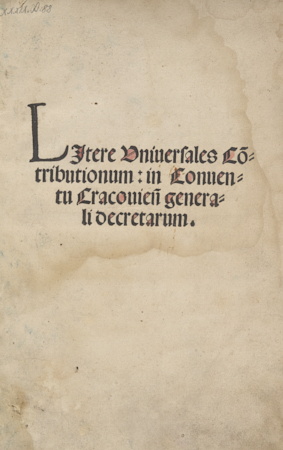 LItere Vniuersales Cō⸗
tributionum: in Conuen⸗
tu Cracouieñ genera⸗
li decretarum.